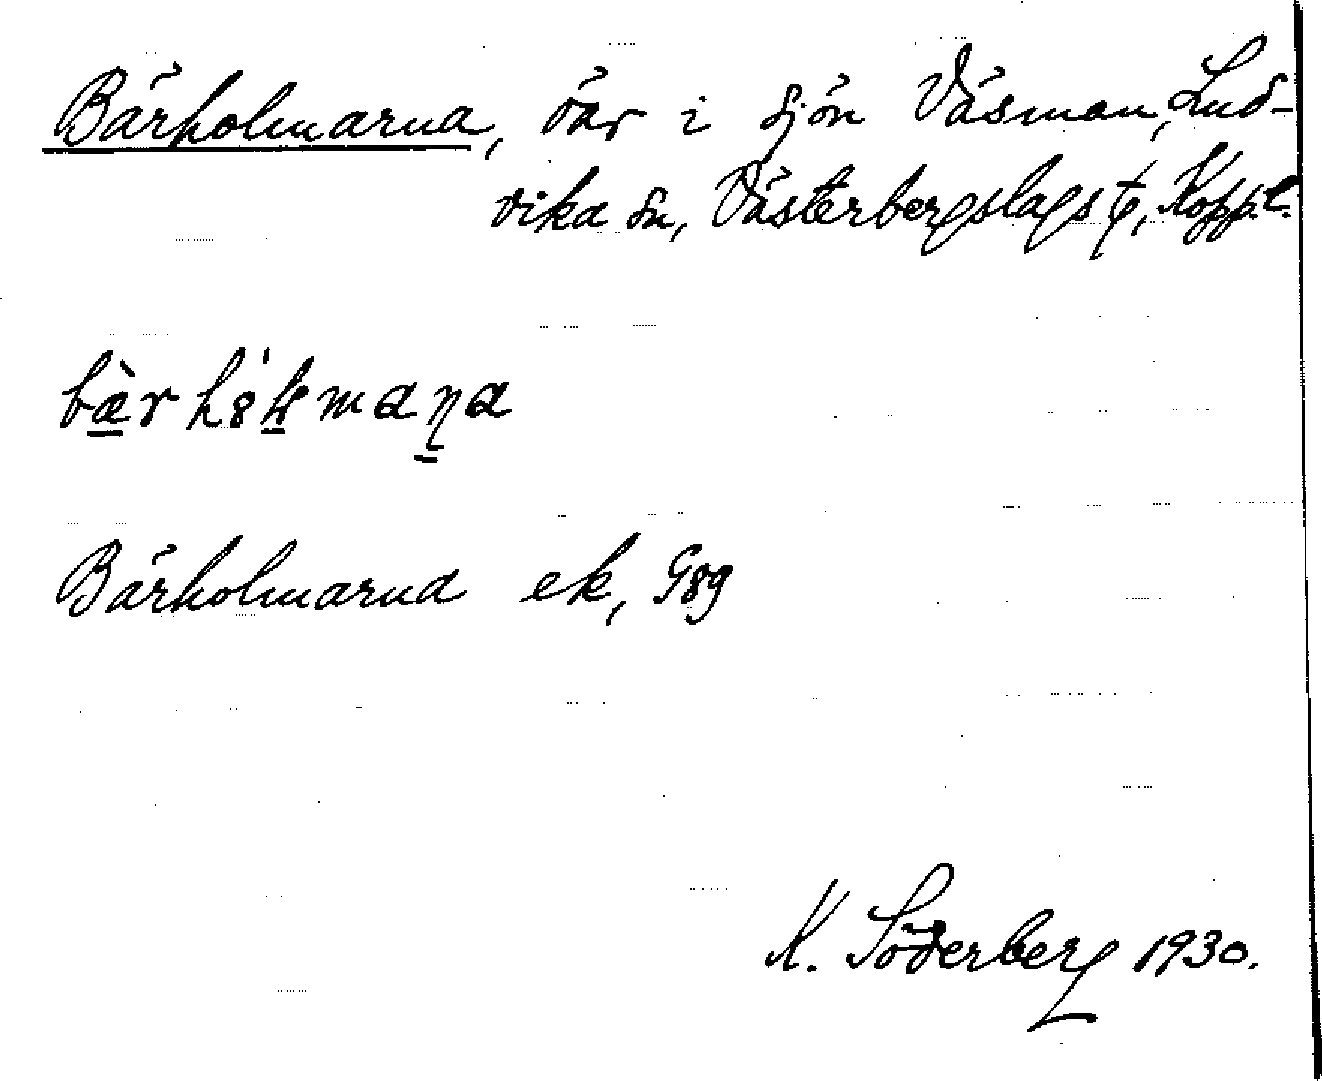 Bärholmarna, öar i sjön Väsman, Lud-
vika sn, Västerbergslags t, Kopp.l.
Bärholmarna ek, 98g
K. Söderberg 1930.